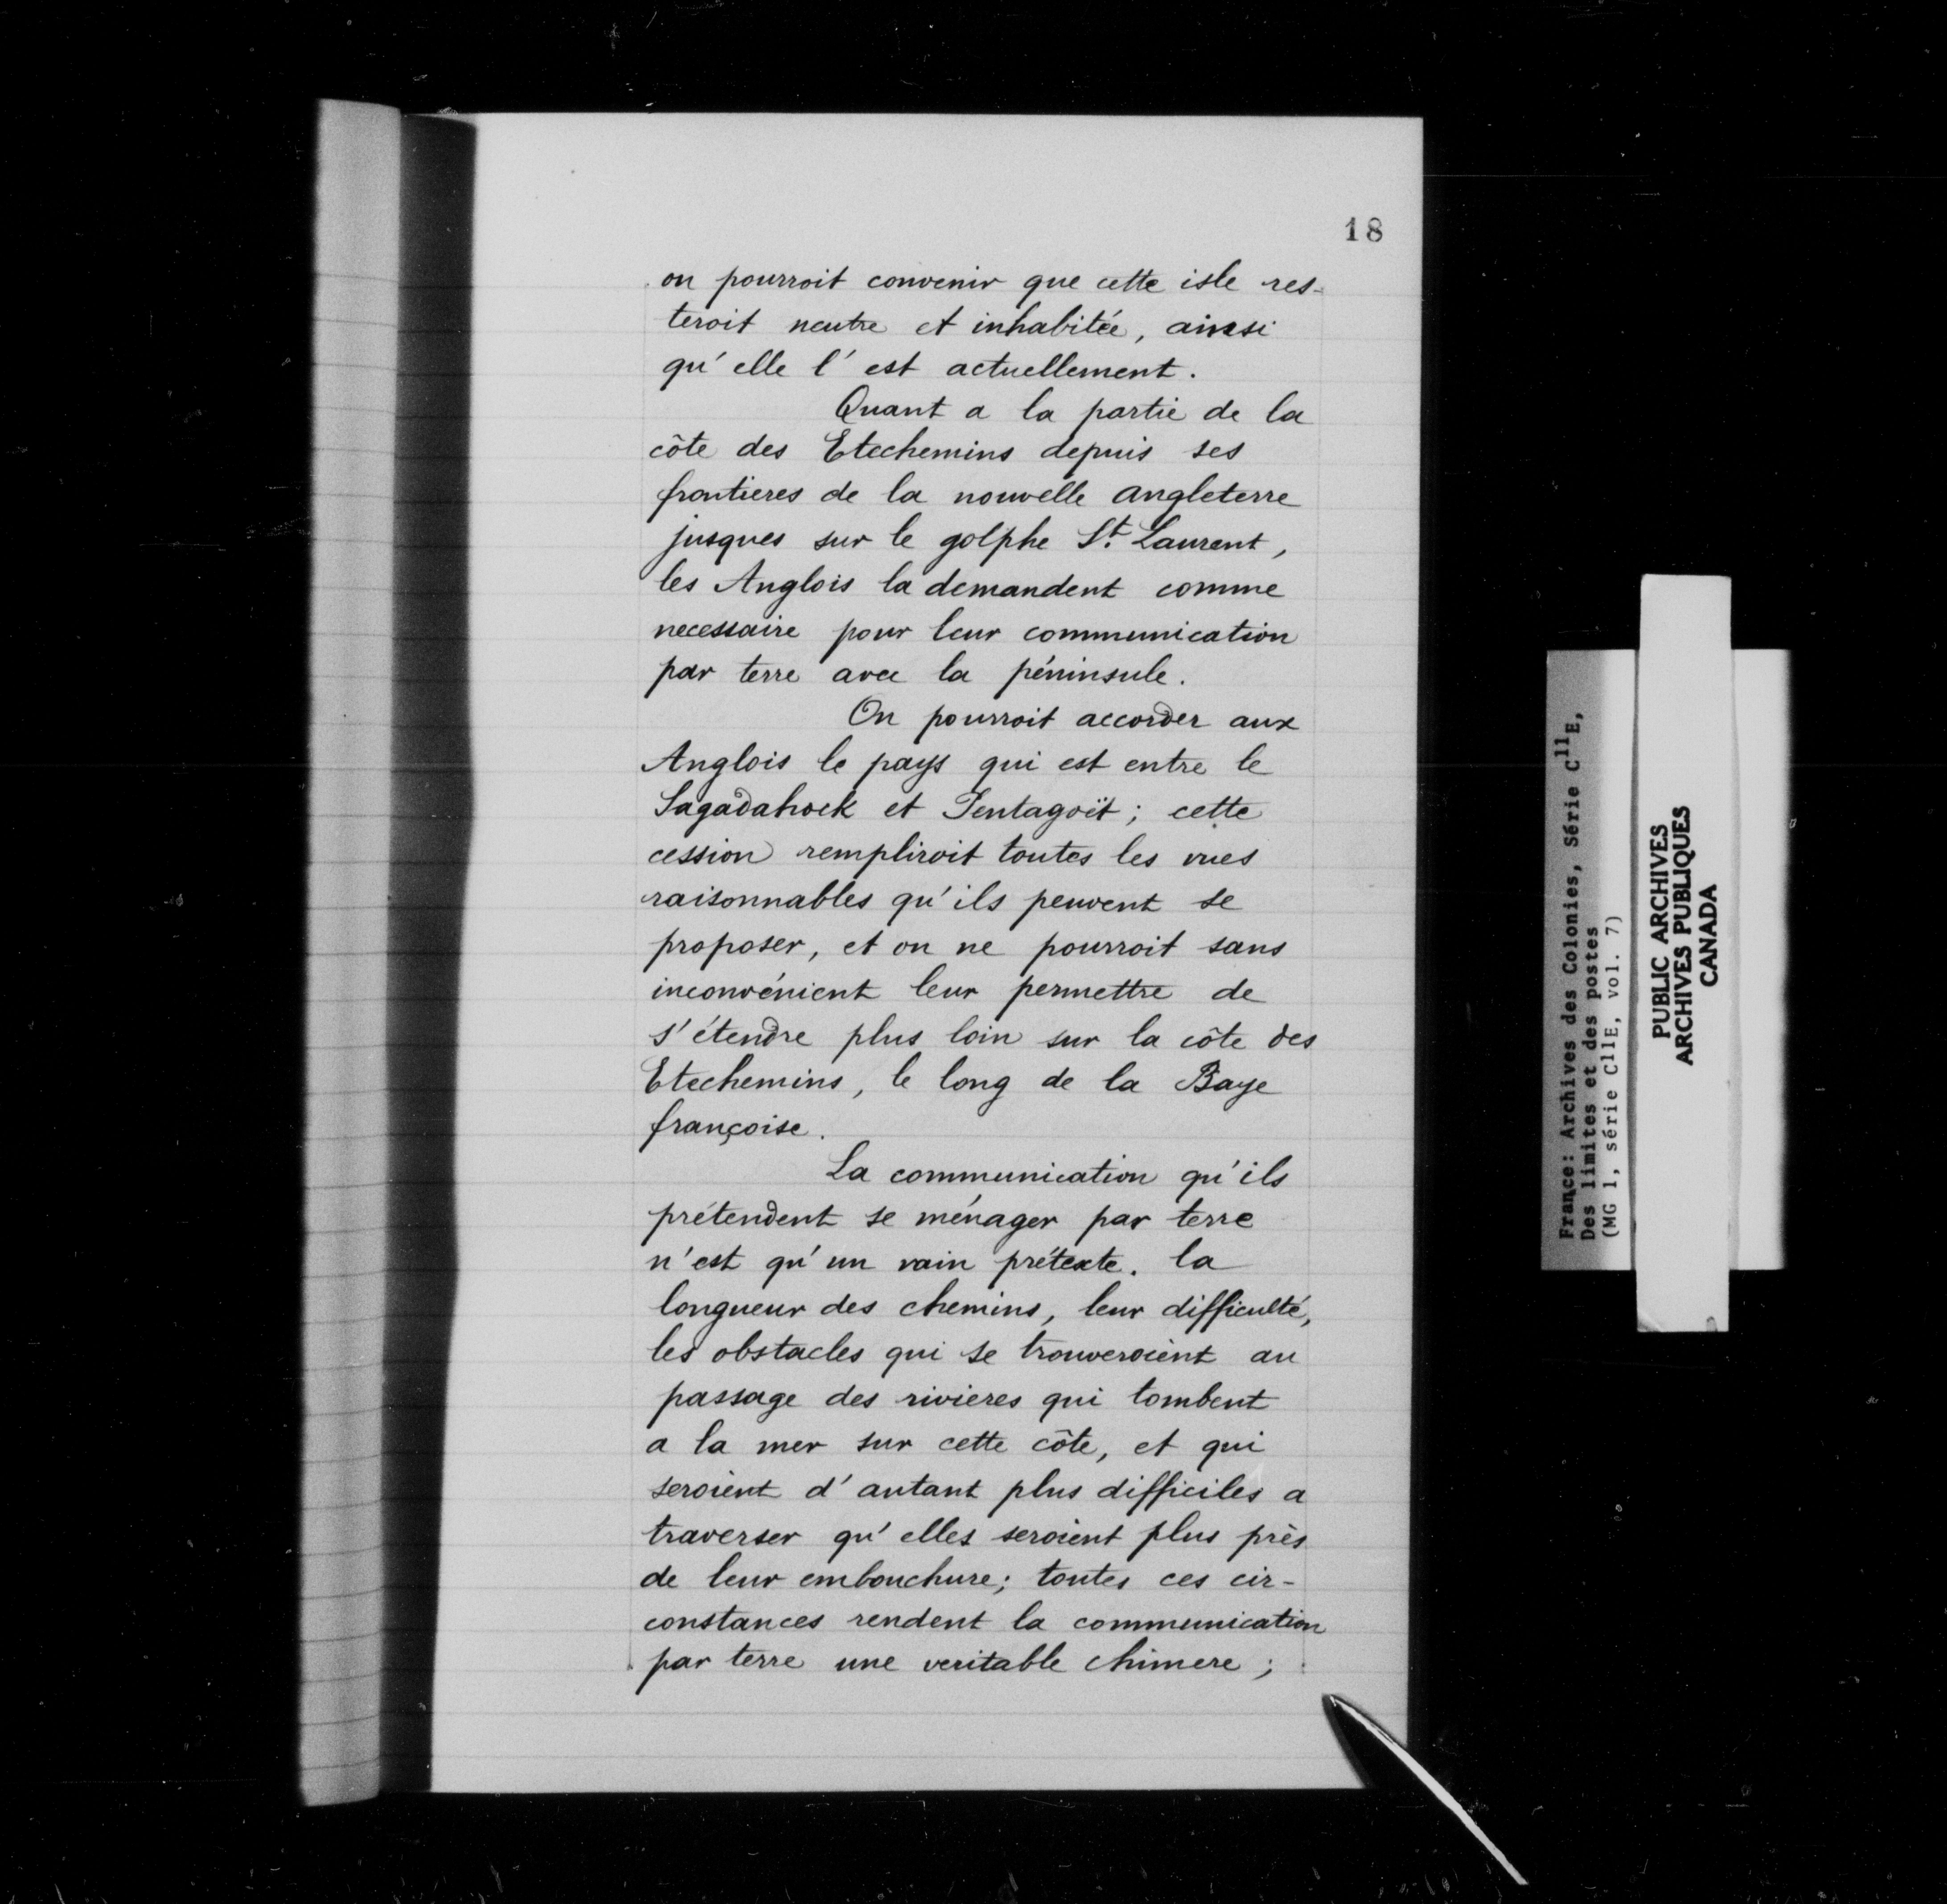 18
on pourroit convenir que cette isle res-
teroit neutre et inhabitée, ainsi
qu'elle l'est actuellement.
Quant a la partie de la
côte des Etechemins depuis ses
frontieres de la nouvelle angleterre
jusques sur le golphe St. Laurent,
les Anglois la demandent comme
necessaire pour leur communication
par terre avec la péninsule.
On pourroit accorder aux
Anglois le pays qui est entre le
Sagadahock et Pentagoët; cette
cession rempliroit toutes les vues
raisonnables qu'ils peuvent se
proposer, et on ne pourroit sans
inconvénient leur permettre de
s'étendre plus loin sur la côte des
Etechemins, le long de la Baye
françoise.
La communication qu'ils
prétendent se ménager par terre
n'est qu'un vain prétexte. la
longueur des chemins, leur difficulté,
les obstacles qui se trouveroient au
passage des rivieres qui tombent
a la mer sur cette côte, et qui
seroient d'autant plus difficiles a
traverser qu'elles seroient plus près
de leur embouchure; toutes ces cir-
constances rendent la communication
par terre une veritable chimere;
France: Archives des Colonies, Série C11E,
Des limites et des postes
(MG 1, série C11E, vol. 7)
PUBLIC ARCHIVES
ARCHIVES PUBLIQUES
CANADA